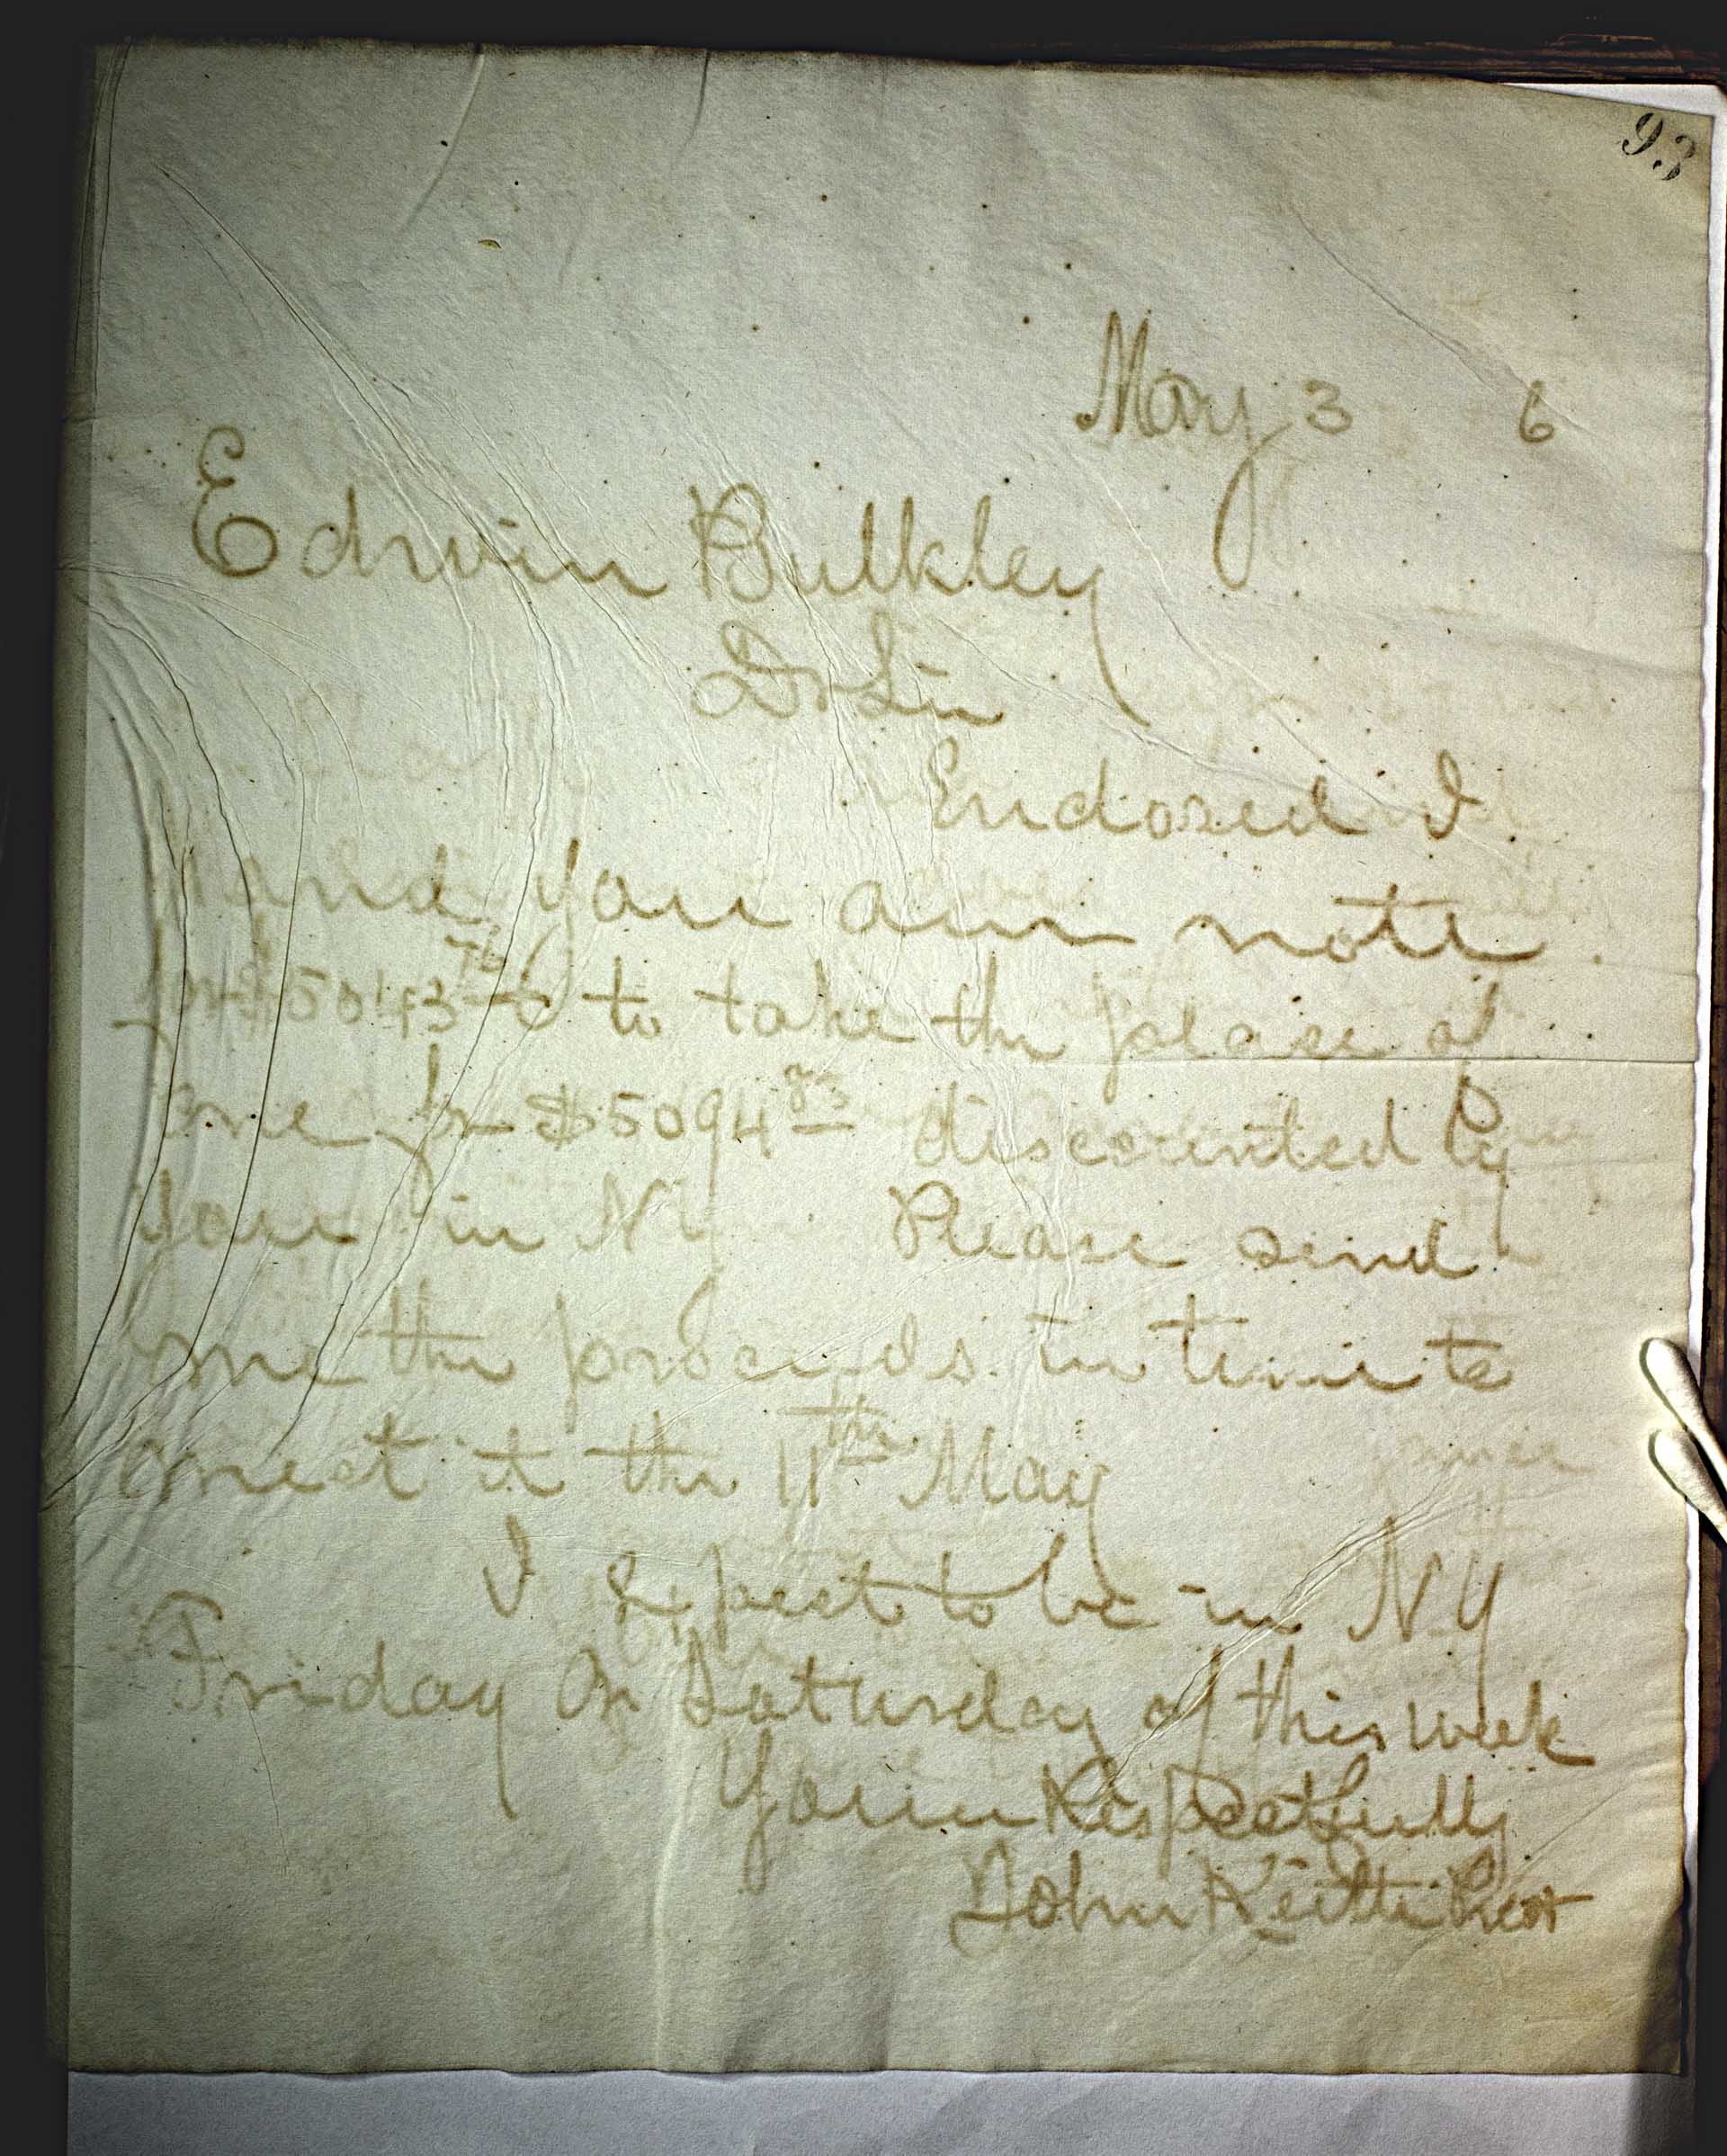 93
May 3 6
Edwin Bulkley
Dr Sir
Enclosed I
send you our note
for $5043 76 to take the place of
one for $5094 83 discounted by
you in NY Please send
me the proceeds in time to
meet it the 11th May
I expect to be in NY
Friday or Saturday of this week
Yours Respectfully
John Keith